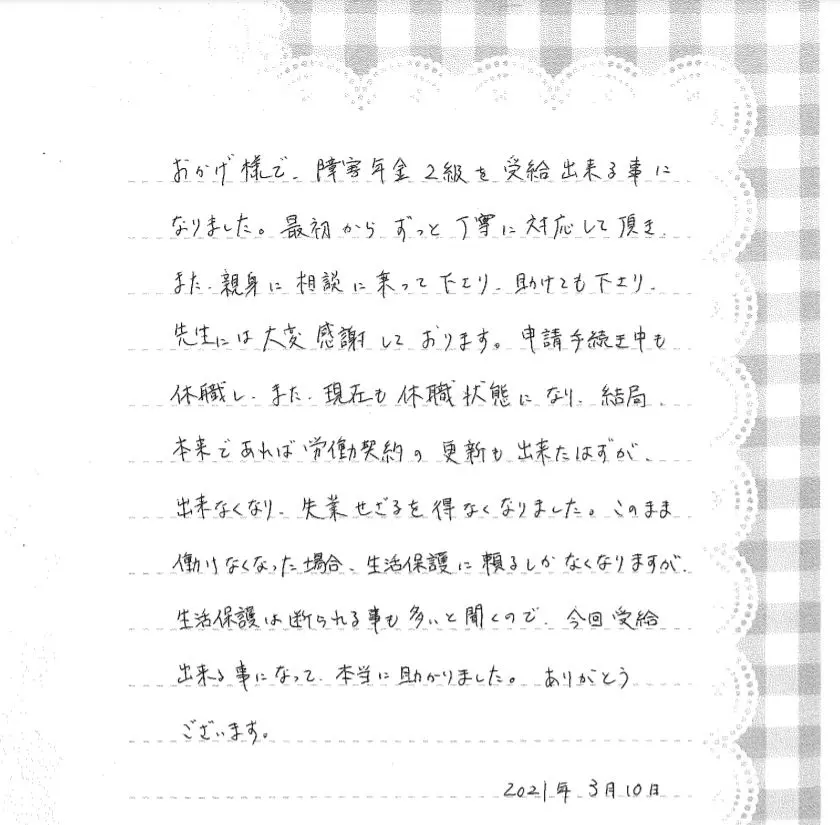 おかげ様で、障害年金2級を受給出来る事に
なりました。最初からずっと丁寧に対応して頂き、
また、親身に相談に乗って下さり、助けても下さり、
先生には大変感謝しております。申請手続き中も
休職し、また、現在も休職状態になり、結局、
本来であれば労働契約の更新も出来たはずが、
出来なくなり、失業せざるを得なくなりました。このまま
働けなくなった場合、生活保護に頼るしかなくなりますが、
生活保護は断られる事も多いと聞くので、今回受給
出来る事になって、本当に助かりました。ありがとう
ございます。
2021年3月10日